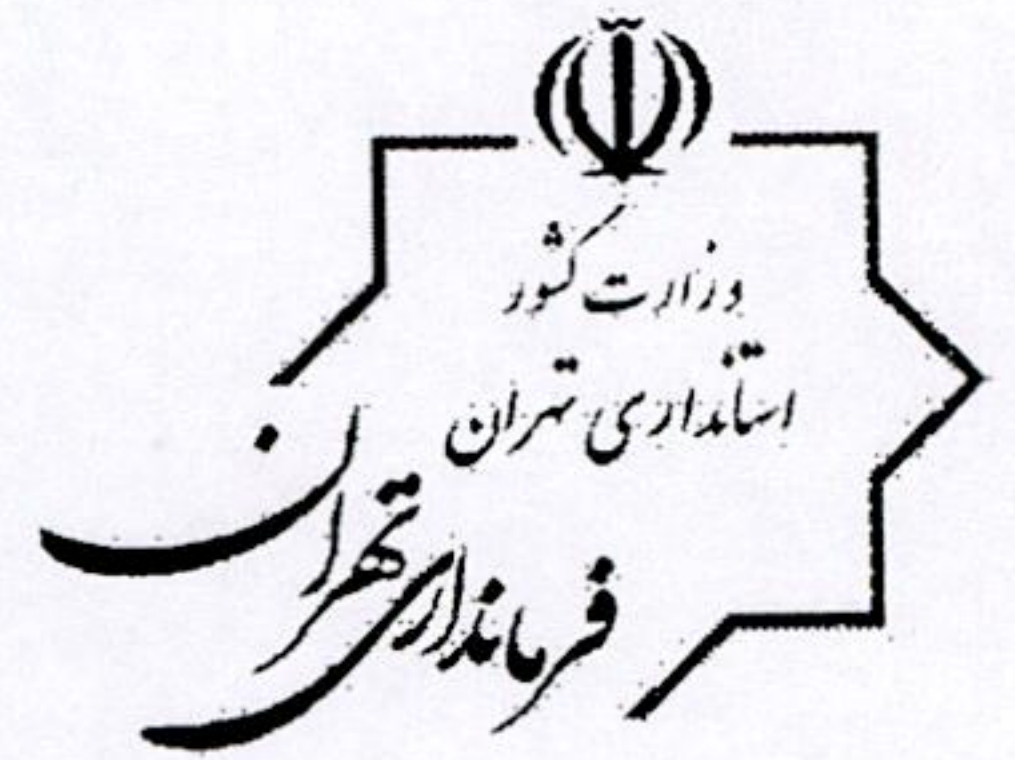 وزارت کشور
استانداری تهران
فرمانداری تهران